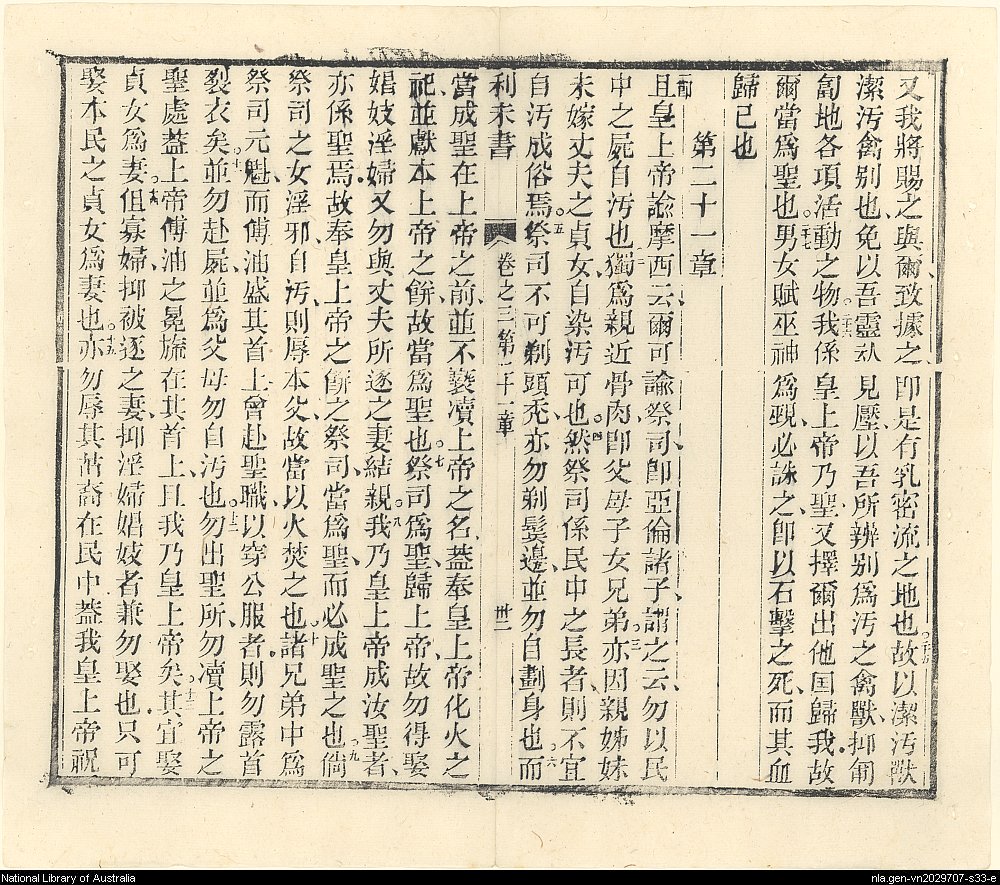 又我將賜之與爾致據之即是有乳密流之地也故以潔汚獸
潔汚禽别也免以吾靈見壓以吾所辨别爲汚之禽獸抑匍
匐地各項活動之物我係皇上帝乃聖又擇爾出他国歸我故
爾當爲聖也男女賦巫神爲覡必誅之卽以石擊之死而其血
歸己也
第二十一章
節且皇上帝諭摩西云爾可諭祭司卽亞倫諸子謂之云勿以民
中之屍自汚也獨爲親近骨肉卽父母子女兄弟亦因親姊妹
未嫁丈夫之貞女自染汚可也然祭司係民中之長者則不宜
自汚成俗焉祭司不可剃頭禿亦勿剃鬚邊並勿自劃身也而
利未書 卷之三第二十一章 卅二
當成聖在上帝之前並不褻瀆上帝之名葢奉皇上帝化火之
祀並獻本上帝之餅故當爲聖也祭司爲聖歸上帝故勿得娶
娼妓淫婦又勿與丈夫所逐之妻結親我乃皇上帝成汝聖者
亦係聖焉故奉皇上帝之餅之祭司當爲聖而必成聖之也倘
祭司之女淫邪自汚則辱本父故當以火焚之也諸兄弟中爲
祭司元魁而傅油盛其首上曾赴聖職以穿公服者則勿露首
裂衣矣並勿赴屍並爲父母勿自汚也勿出聖所勿瀆上帝之
聖處葢上帝傅油之冕旒在其首上且我乃皇上帝矣其宜娶
貞女爲妻但寡婦抑被逐之妻抑淫婦娼妓者兼勿娶也只可
娶本民之貞女爲妻也亦勿辱其苗裔在民中葢我皇上帝祝
National Library of Australia
nla.gen-vn2029707-s33-e